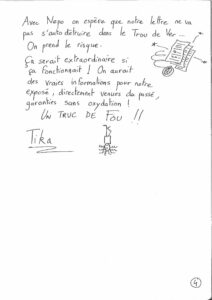 Avec Napo on espère que notre lettre ne va
pas s'autodétruire dans le Trou de Ver...
On prend le risque.
Ça serait extraordinaire si
ça fonctionnait ! On aurait
des vraies informations pour notre
exposé, directement venues du passé,
garanties sans oxydation !
UN TRUC DE FOU !!
Tika
4